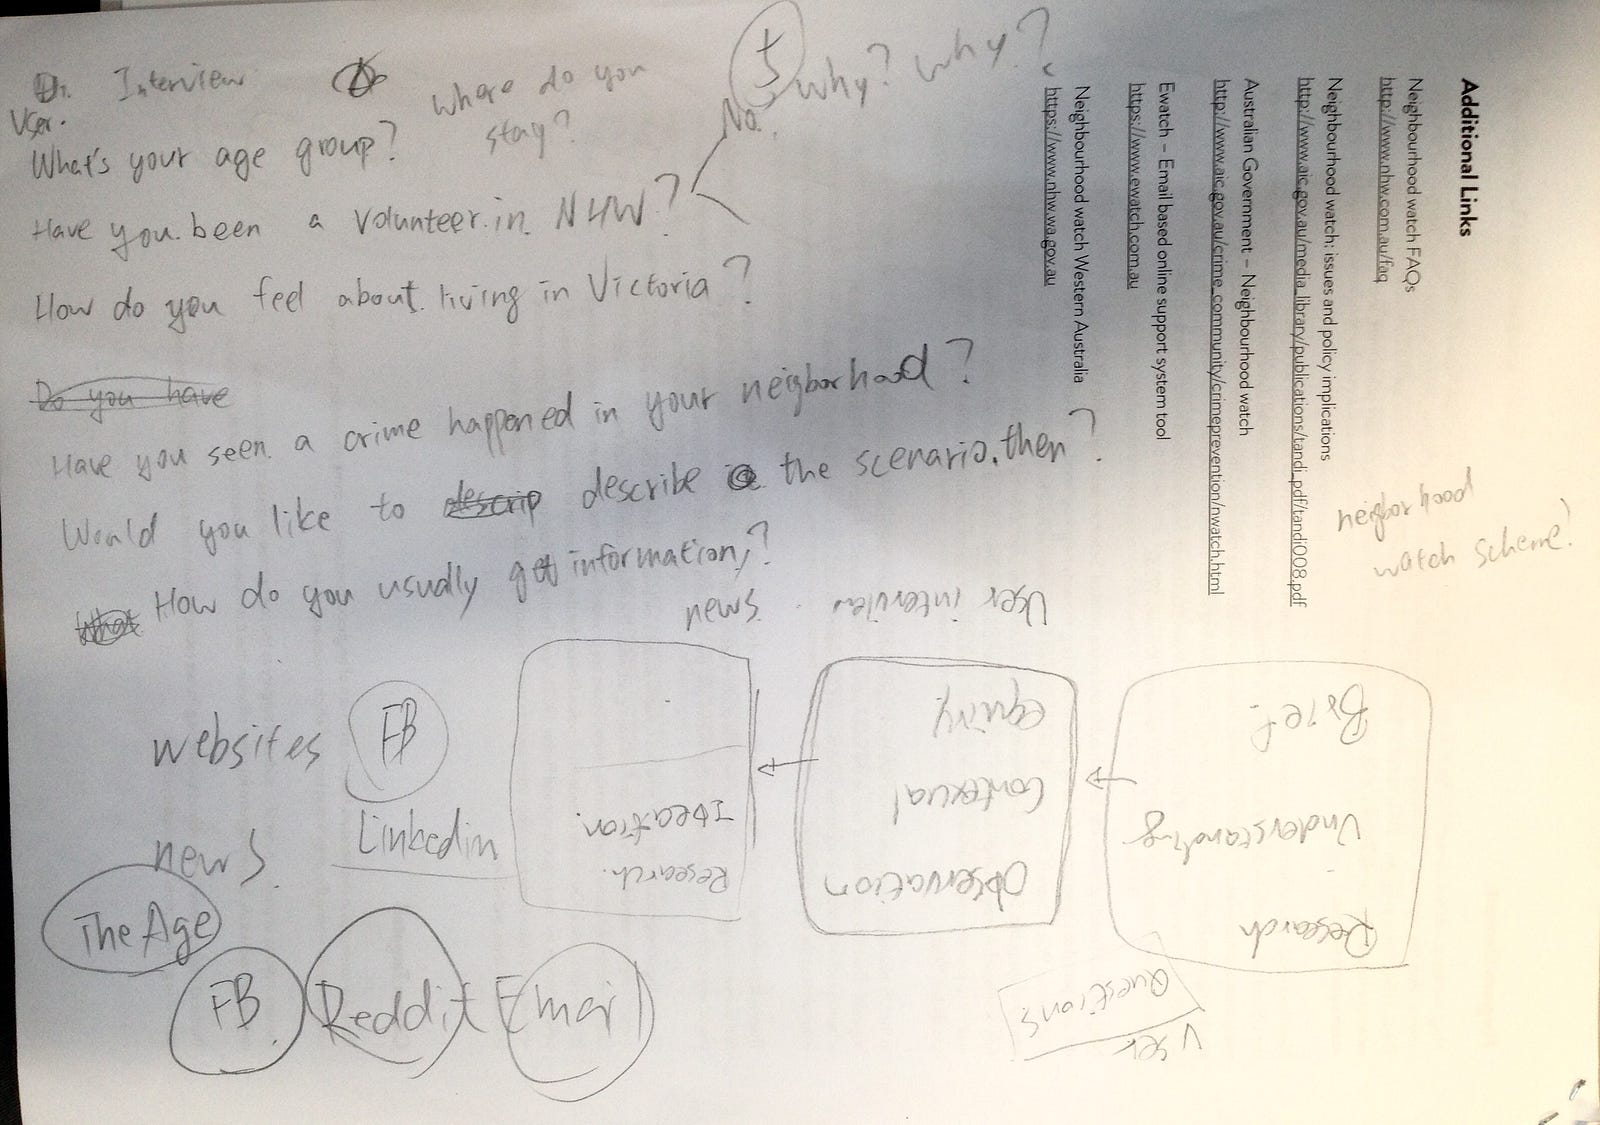 User. Interview
where do you
stay?
5
why? why?
No.
What's your age group?
Have you been a volunteer in NHW?
How do you feel about living in Victoria?
Do you have
Have you seen a crime happened in your neigborhood?
Would you like to descrip describe the scenario, then?
What How do you usually get information?
news
websites FB
news. Linkedin
The Age
FB Reddit Email
Additional Links
Neighbourhood watch FAQs
http://www.nhw.com.au/faq
Neighbourhood watch: issues and policy implications
http://www.aic.gov.au/media_library/publications/tandi_pdf/tandi008.pdf
Australian Government – Neighbourhood watch
http://www.aic.gov.au/crime_community/crimeprevention/nwatch.html
Ewatch – Email based online support system tool
https://www.ewatch.com.au
Neighbourhood watch Western Australia
https://www.nhw.wa.gov.au
neigborhood
watch scheme?
User
Questions
Research
Understanding
Brief.
Observation
Contexual
equiry
User interview
Research.
Ideation.